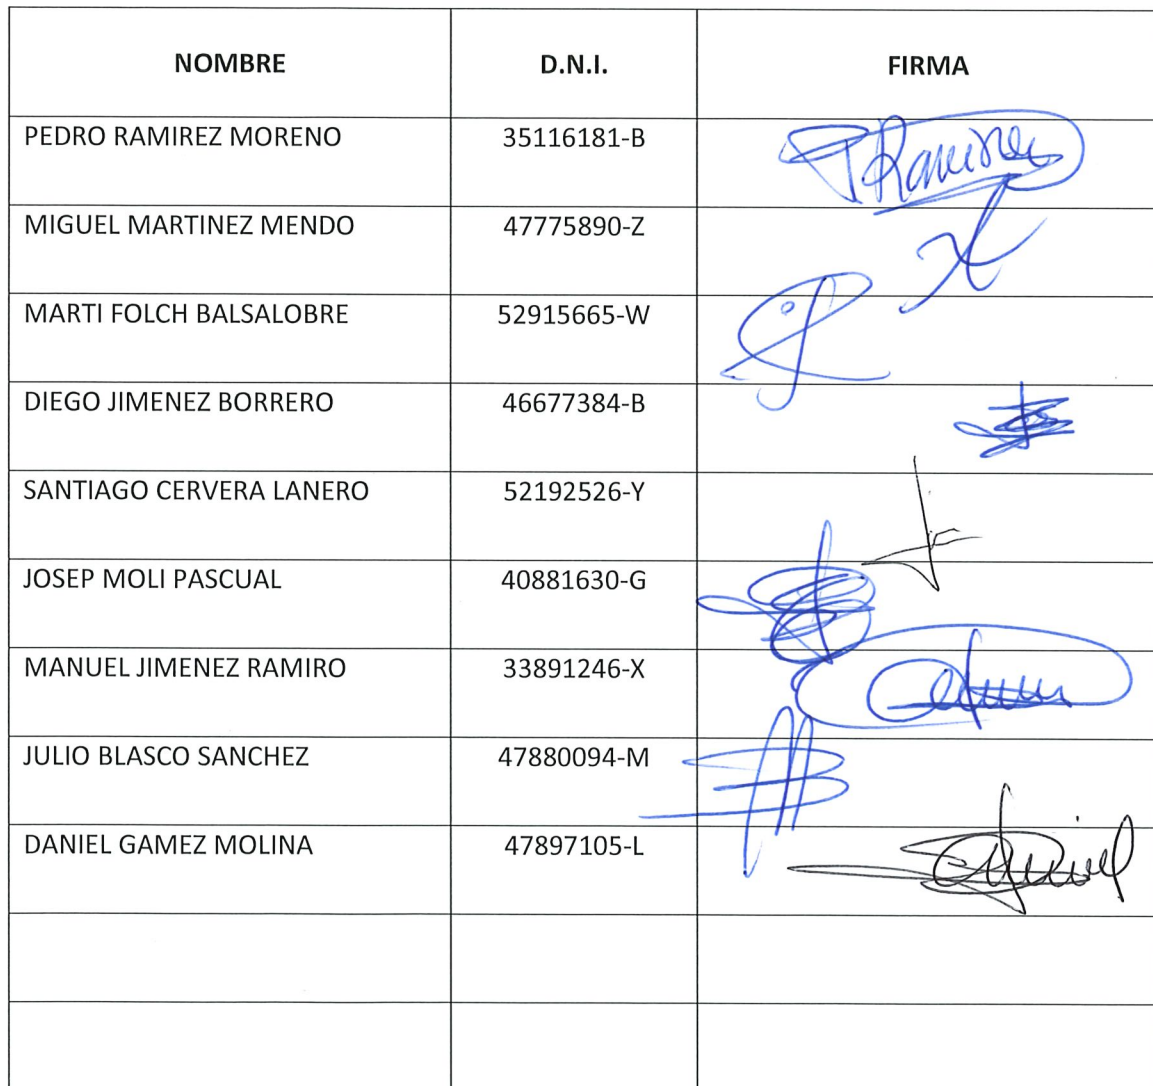 NOMBRE D.N.I. FIRMA
PEDRO RAMIREZ MORENO 35116181-B
MIGUEL MARTINEZ MENDO 47775890-Z
MARTI FOLCH BALSALOBRE 52915665-W
DIEGO JIMENEZ BORRERO 46677384-B
SANTIAGO CERVERA LANERO 52192526-Y
JOSEP MOLI PASCUAL 40881630-G
MANUEL JIMENEZ RAMIRO 33891246-X
JULIO BLASCO SANCHEZ 47880094-M
DANIEL GAMEZ MOLINA 47897105-L